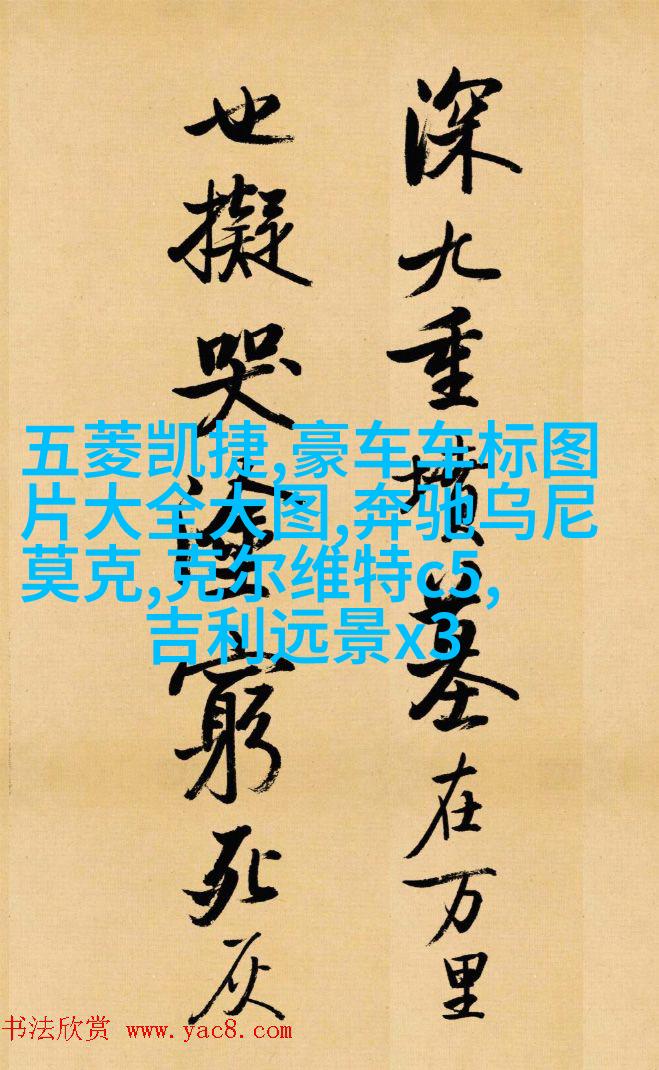 深九重墳墓在万里
也擬哭塗窮死灰
五菱凯捷,豪车车标图
片大全大图,奔驰乌尼
莫克,克尔维特c5,
吉利远景x3
书法欣赏 www.yac8.com